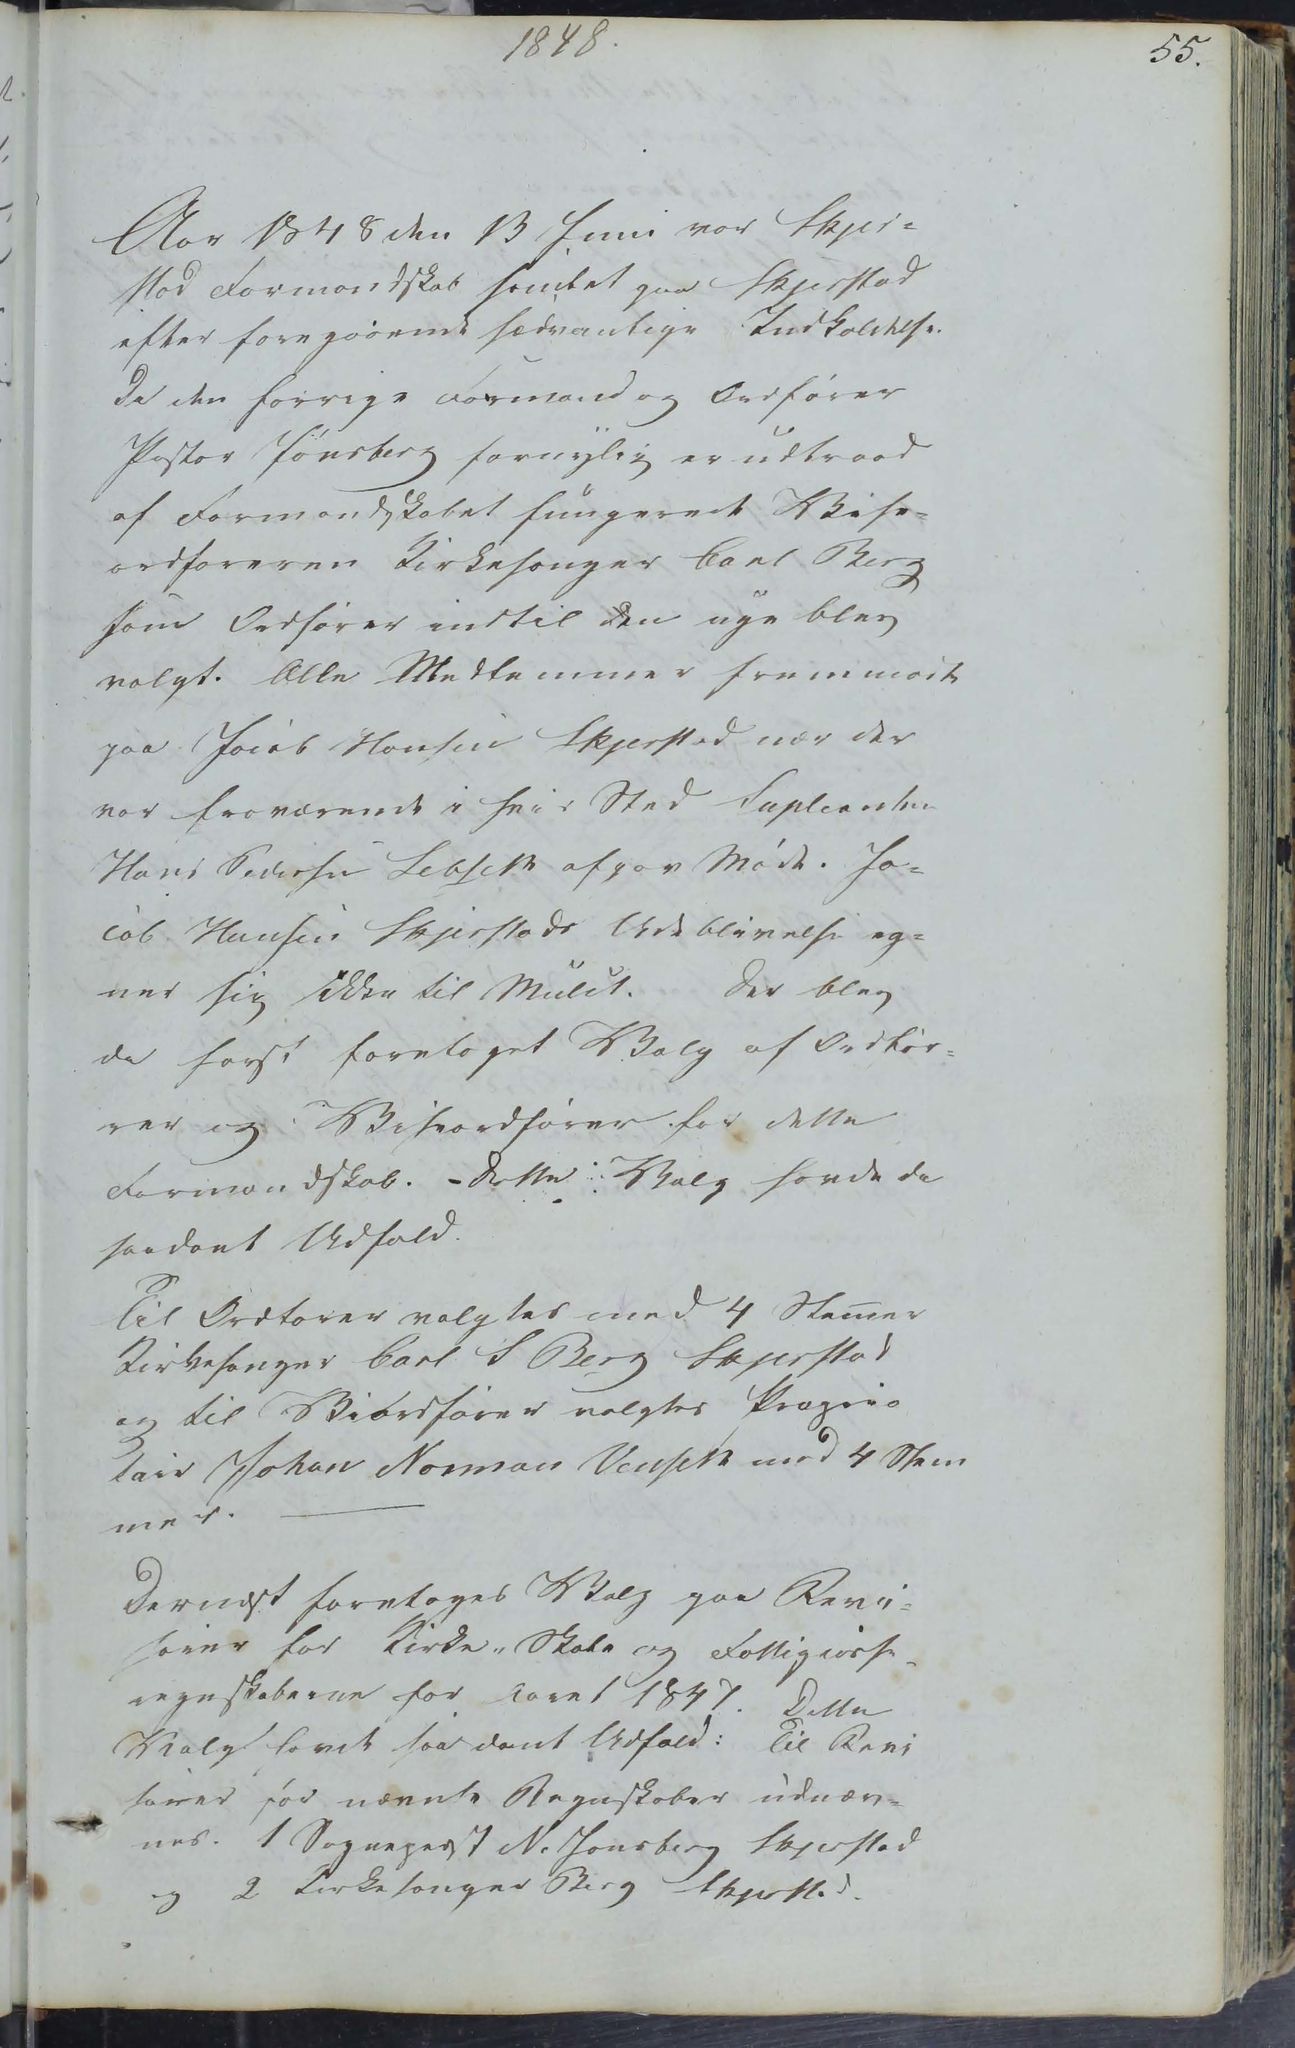 1848.
55.
Aar 1848 den 13 Juni var Skjer-
stad Formandskab samlet paa Skjerstad
efter foregaaende sædvanlige Indkaldelse.
Da den forrige Formand og Ordfører
Pastor Jønsberg fornylig er udtraad
af Formandskabet fungerede Vise-
ordføreren Kirkesanger Carl Berg
som Ordfører indtil den nye blev
valgt. Alle Medlemmer fremmødte
paa Jacob Hansen Skjerstad nær der
var fraværende i hvis Sted Supleanten
Hans Pedersen Lebseth afgav Møde. Ja-
cob Hansen Skjerstads Udeblivelse eg-
ner sig ikke til Mulct. Der blev
da først foretaget Valg af Ordfør-
rer og Viseordfører for dette
Formandskab. - Dette Valg havde da
saadant Udfald.
Til Ordfører valgtes med 4 Stemer
Kirkesanger Carl S Berg Skjerstad
og til Viordfører valgtes Proprie-
tair Johan Norman Venseth med 4 Stem
mer.
Dernæst foretoges Valg paa Revi-
sorer for Kirke-, Skole og Fattigcasse-
regnskaberne for Aaret 1847. Dette
Valg havde saadant Udfald: Til Revi
sorer for nævnte Regnskaber udnæv-
nes. 1 Sogneprest N. Jonsberg Skjerstad
og 2 Kirkesanger Berg Skjerstad.